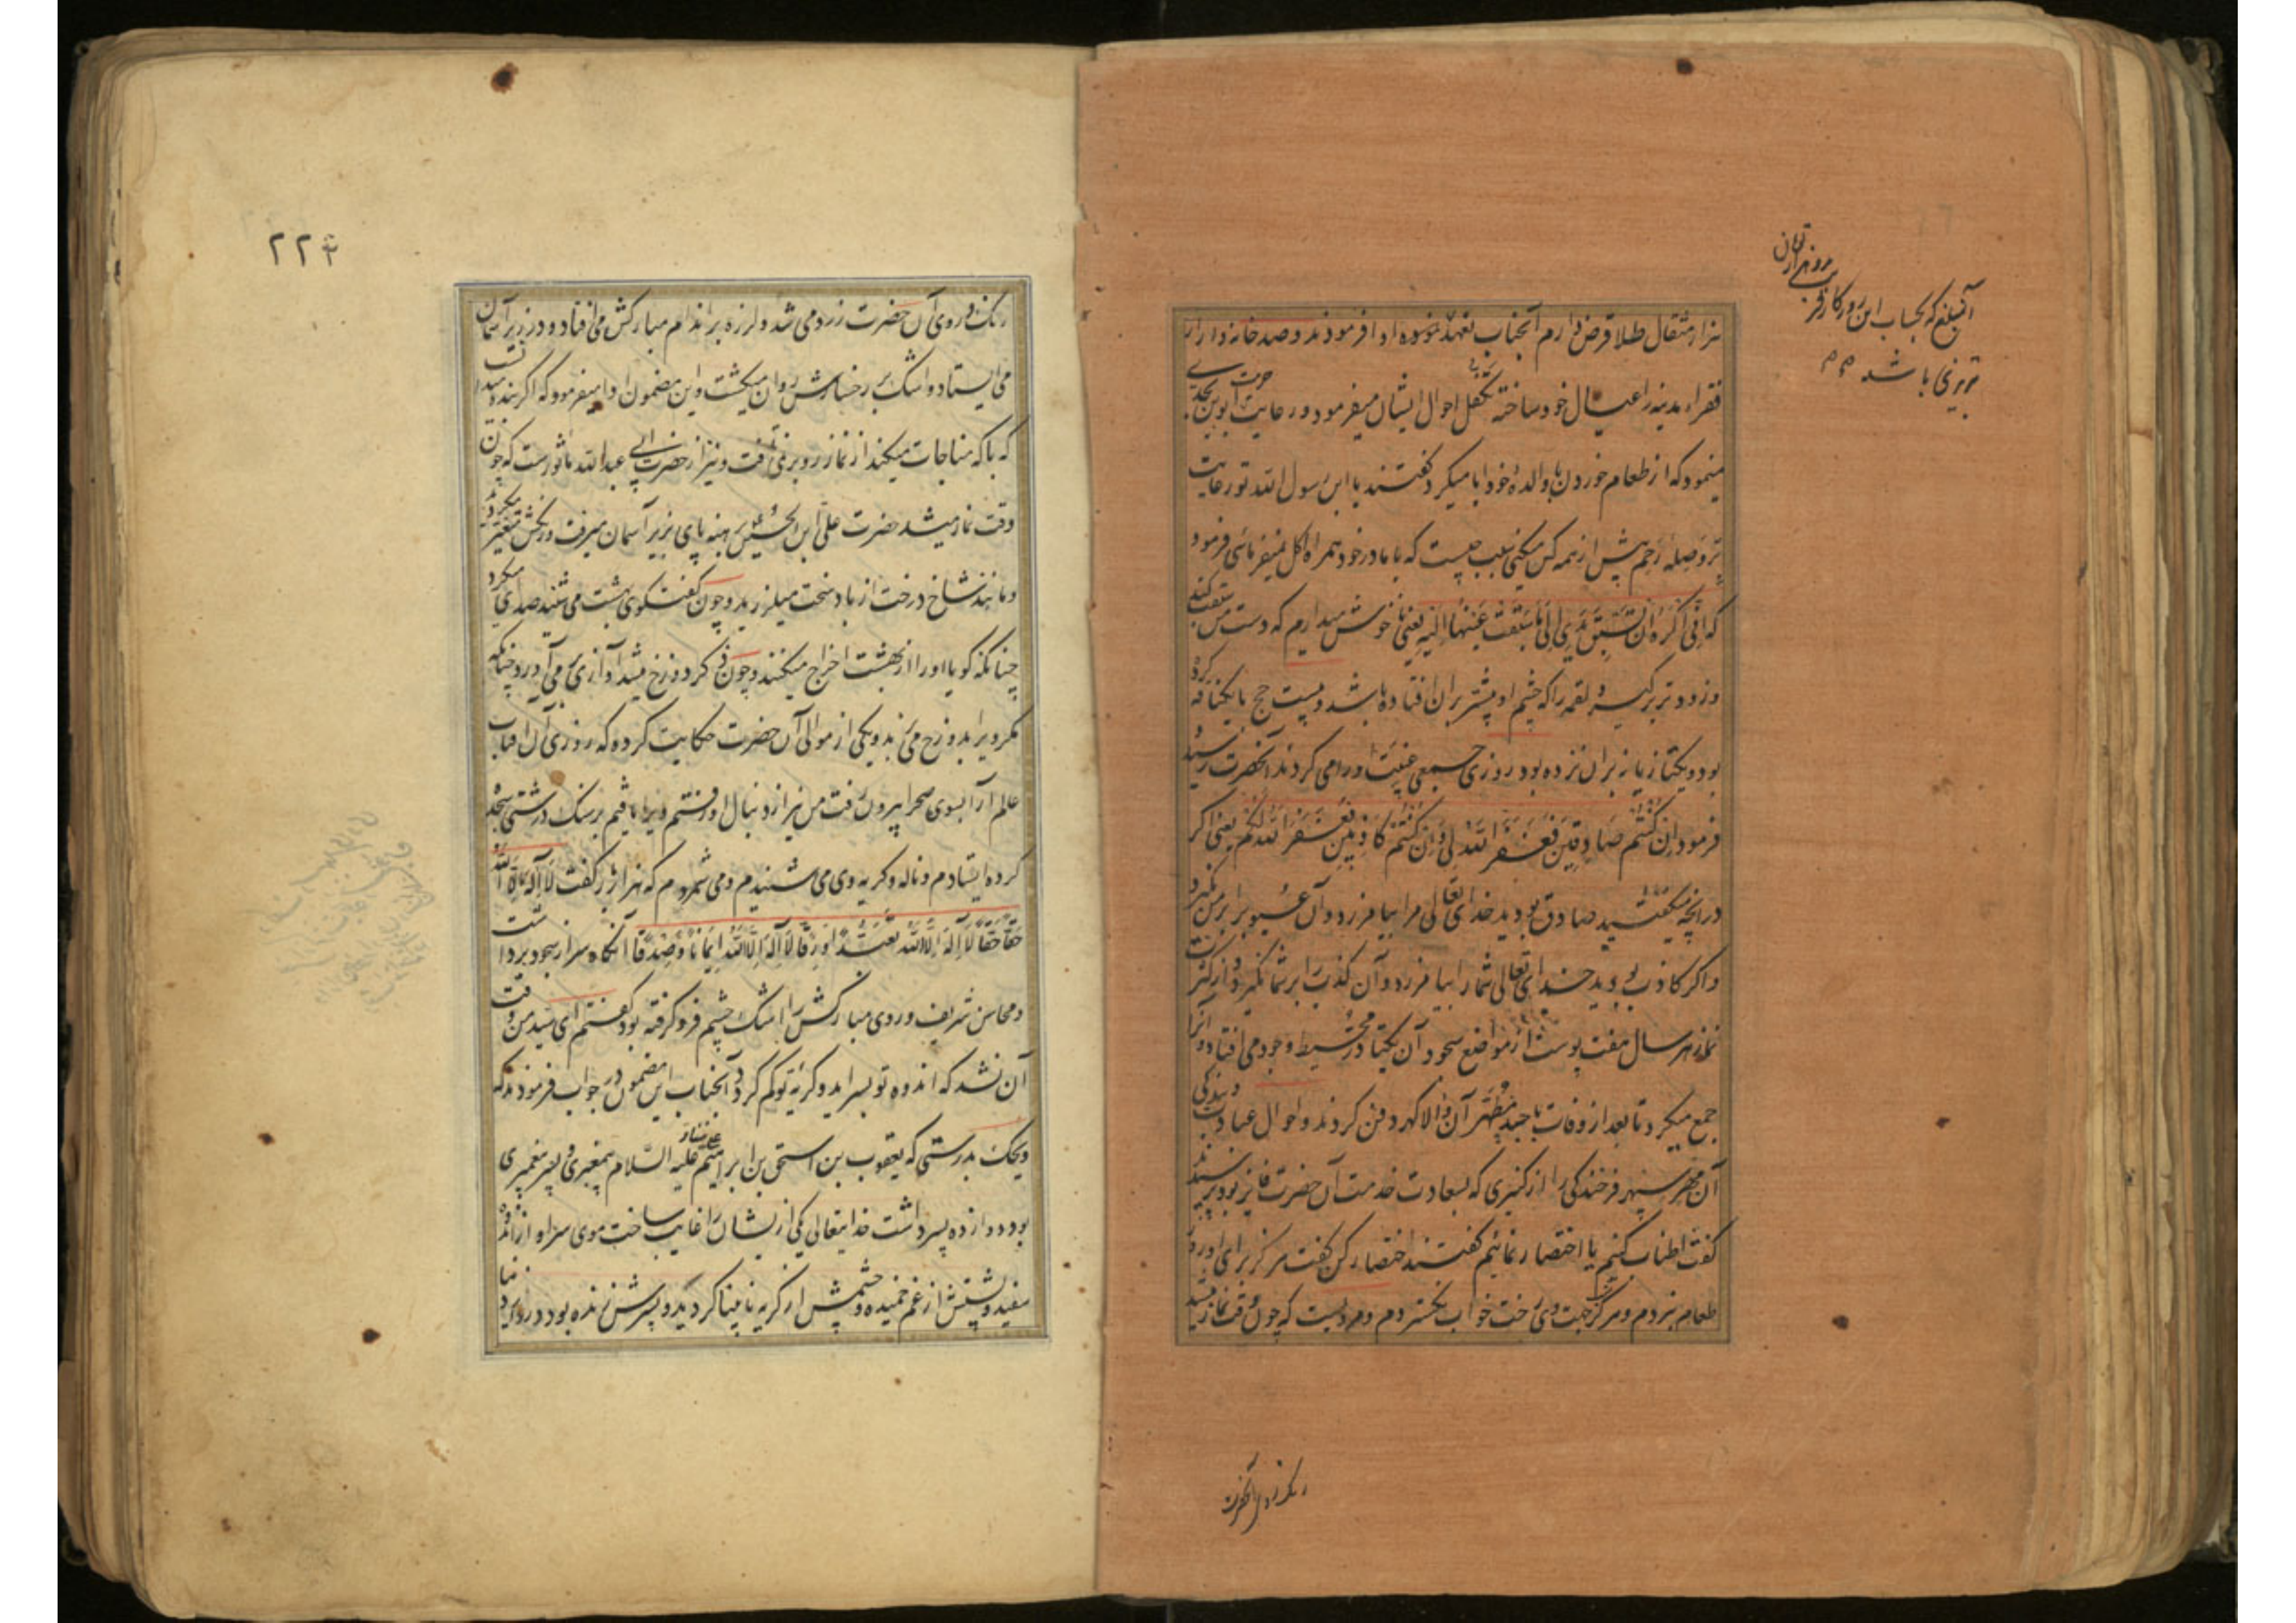 هزار مثقال طلا قرض دارم آنجناب تعهد نموده ادا فرمودند و صد خانه وار از
فقراء مدینه را عیال خود ساخته تکفل احوال ایشان میفرمود و رعایت حرمت ابوین بحدی
مینمود که از طعام خوردن با والدهٔ خود ابا میکرد گفتند یا ابن رسول الله تو رعایت
بر و صلهٔ رحم بیش از همه کس میکنی سبب چیست که با مادر خود همراه اکل نمیفرمائی فرمود
که انی اکره ان تسبق یدی الی ما سبقت عینها الیه یعنی ناخوش میدارم که دست من سبقت کند
و زودتر برگیرد لقمه را که چشم او پیشتر بران افتاده باشد و بیست حج با یکناقه کرده
بود و یکتازیانه بران نزده بود روزی جمعی غیبت او را می کردند آنحضرت رسید
فرمود ان کنتم صادقین فغفر الله لی و ان کنتم کاذبین فغفر الله لکم یعنی اگر
در آنچه میگفتید صادق بودید خدای تعالی مرا بیامرزد و آن عیب بر من نگیرد
و اگر کاذب بودید خدای تعالی شما را بیامرزد و آن کذب را بر شما نگیرد و از کثرت
نماز هر سال هفت پوست از مواضع سجود آن یکتا در محیط وجود می افتاد و آنرا
جمع میکرد تا بعد از وفات با جسد مطهر آن والا گهر دفن کردند و احوال عبادت و بندگی
آن مهر سپهر فرخندگی را از کنیزی که بسعادت خدمت آن حضرت فایز بود پرسیدند
گفت اطناب کنیم یا اختصار نمائیم گفتند اختصار کن گفت هرگز برای او روز
طعام نبردم و هرگز جهت وی رخت خواب نگستردم و مرویست که چون وقت نماز میشد
آنمبلغ که بحساب این روزگار قریب
بدو هزار تومان
تبریزی باشد
رنگ و روی آنحضرت
۲۲۴
رنگ و روی آن حضرت زرد می شد و لرزه بر اندام مبارکش می افتاد و در زیر آسمان
می ایستاد و اشک بر رخسارش روان میگشت و این مضمون ادا میفرمود که اگر بنده میدانست
که با که مناجات میکند از نماز رو بر نمی تافت و نیز از حضرت ابی عبدالله ماثورست که چون
وقت نماز میشد حضرت علی ابن الحسین برهنه پای بزیر آسمان میرفت و رنگش متغیر میگردید
و مانند شاخ درخت از باد سخت میلرزید و چون گفتگوی بهشت می شنید صدای میکرد
چنانکه گویا او را از بهشت اخراج میکنند و چون ذکر دوزخ میشد آوازی می آورد چنانکه
مگر ویرا بدوزخ می برند و یکی از موالی آن حضرت حکایت کرده که روزی آن آفتاب
عالم آرا بسوی صحرا بیرون رفت من نیز از دنبال او رفتم ویرا یافتم بر سنک درشتی سجده
کرده ایستادم و ناله و گریه وی می شنیدم و می شمردم که هزار بار گفت لا اله الا الله
حقا حقا لا اله الا الله تعبدا و رقا لا اله الا الله ایمانا و صدقا آنگاه سر از سجود برداشت
و محاسن شریف و روی مبارکش را اشک چشم فرو گرفته بود گفتم ای سید من وقت
آن نشد که اندوه تو بسر آید و گریه تو کم گردد آنجناب این مضمون در جواب فرمودند که
ویحک بدرستی که یعقوب بن اسحق بن ابراهیم علیه السلام پیغمبری و پسر پیغمبری
بود دوازده پسر داشت خدایتعالی یکی از یشان را غایب ساخت موی سر او از اندوه
سفید و پشتش از غم خمیده و چشمش از گریه نابینا گردید و پسرش زنده بود در دار دنیا